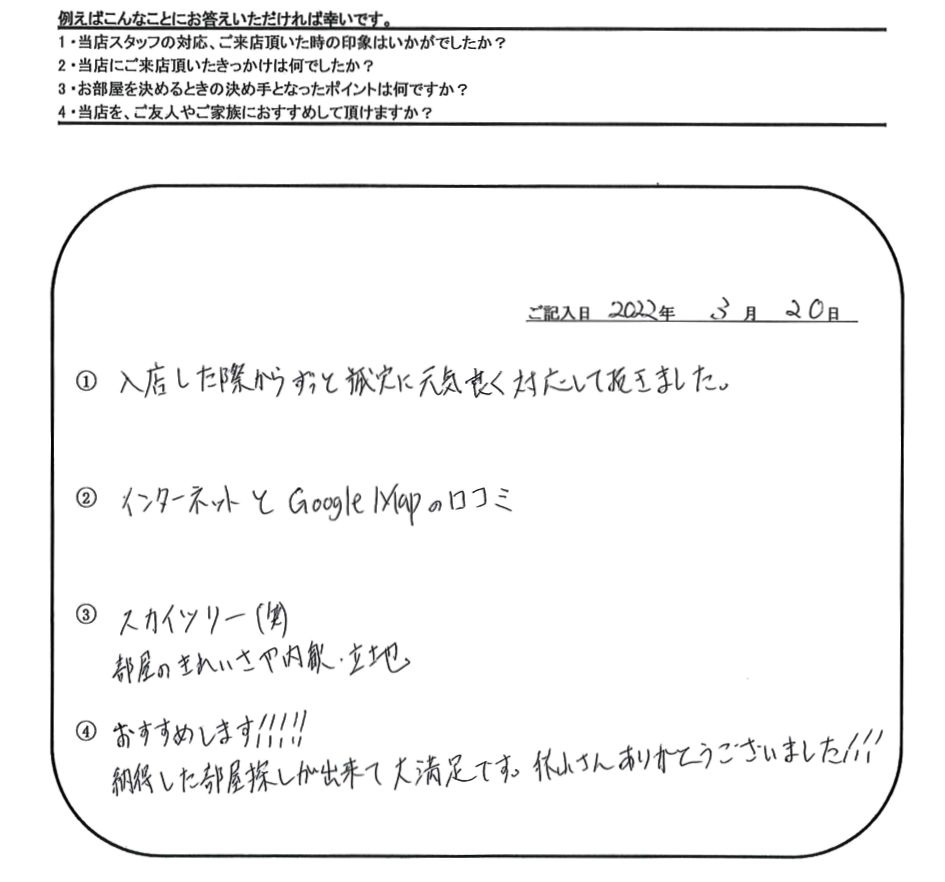 例えばこんなことにお答えいただければ幸いです。
1・当店スタッフの対応、ご来店頂いた時の印象はいかがでしたか？
2・当店にご来店頂いたきっかけは何でしたか？
3・お部屋を決めるときの決め手となったポイントは何ですか？
4・当店を、ご友人やご家族におすすめして頂けますか？
ご記入日 2022年 3月 20日
① 入店した際からずっと誠実に元気良く対応して頂きました。
② インターネットと Google Mapの口コミ
③ スカイツリー(笑)
部屋のきれいさや内観・立地
④ おすすめします!!!!!
納得した部屋探しが出来て大満足です。さんありがとうございました!!!